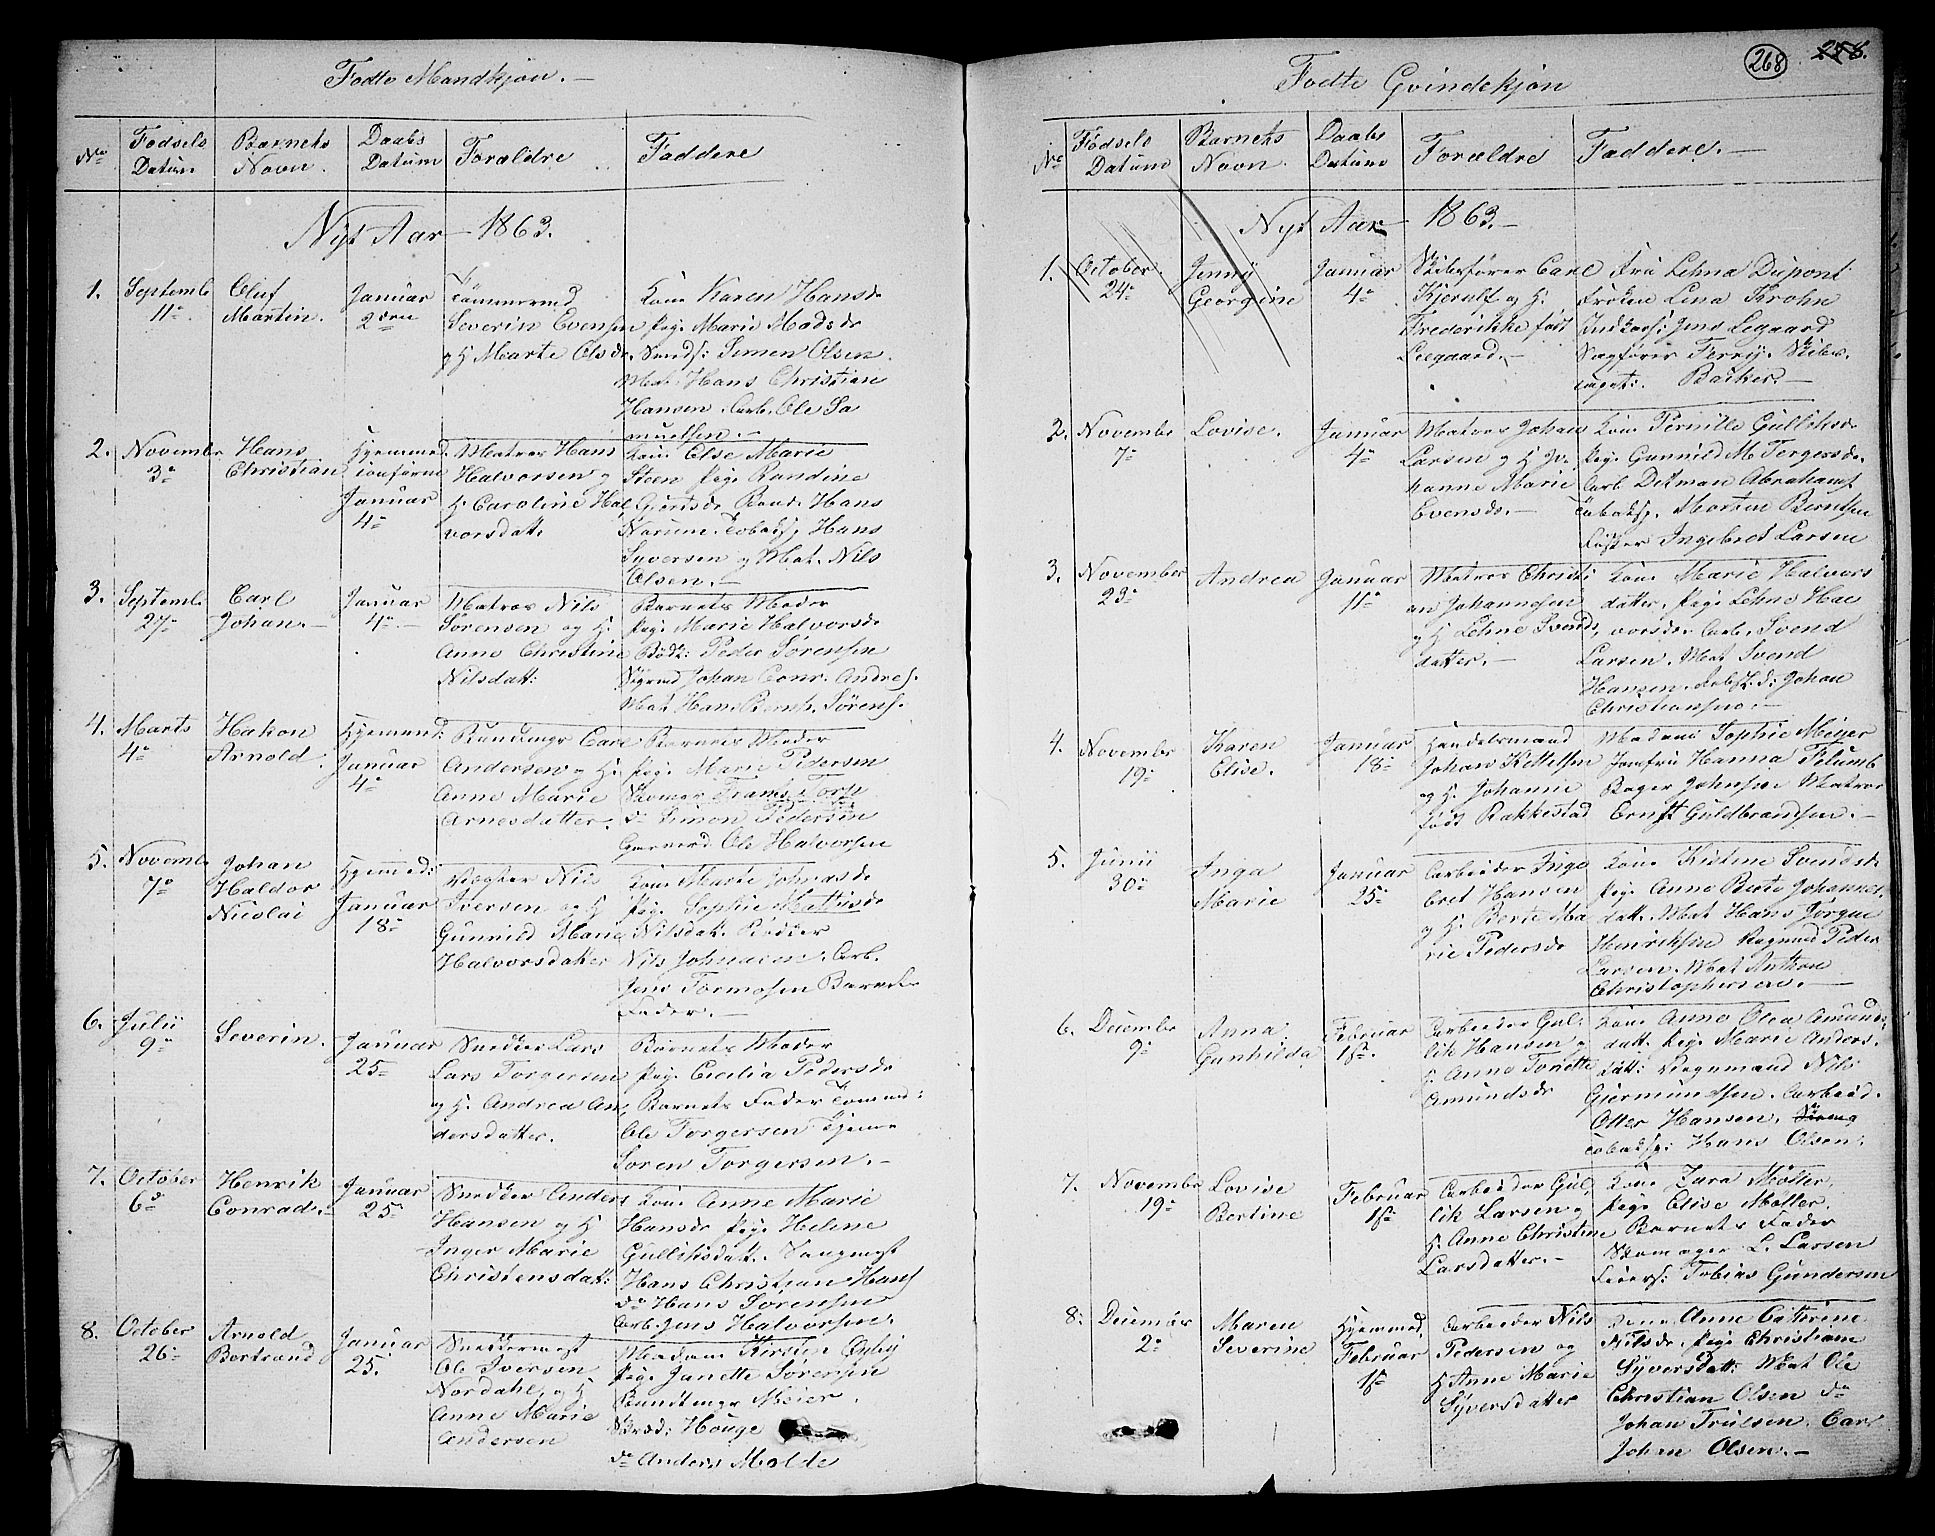 Fødte Mandkjøn. —
No
Fødsels Datum
Barnets Navn.
Daabs Datum
Forældre
Faddere
Nyt Aar — 1863.
1. Septembr 11te
Oluf Martin.
Januar 2den
Tømmermd
Severin Evensen
og H Marte Olsdr.
Kone Karen Hansdr
Pige Marie Madsdr
Simen Olsen.
Mat. Hans Christian
Hansen. Arb. Ole Sa
muelsen. —
2. Novembr 3e
Hans Christian
Hjemmed
Januar 4e
Matros Hans
Halvorsen og
H. Caroline Hal
vorsdatt.
Kone Else Marie
Steen Pige Randine
Gjertsdr Hans
Narum. Tobaksp. Hans
Syversen og Mat. Nils
Olsen. —
3. Septembr 27e
Carl Johan. —
Januar 4e —
Matros Nils
Sørensen og H.
Anne Christine
Nilsdatt:
Barnets Moder
Pige Marie Halvorsdr
Bødk: Peder Sørensen
Johan Conr. Andres.
Mat Hans Bernh. Sørens.
4. Marts 4e
Hakon Arnold.
Hjemmed:
Januar 4e
Bundtmgr Carl
Andersen og H.
Anne Marie
Arnesdatter.
Barnets Moder
Pige Marie Pedersen
Skomgr Frams Torp
do Simon Pedersen
Ole Halvorsen
5. Novembr 7e
Johan Haldor Nicolai
Hjemmed:
Januar 18e
Vægter Nils
Iversen og H
Gunnild Marie
Halvorsdatter
Kone Marte Johnasdr
Pige Sophie Mathisdr
Nilsdatt: Bødker
Nils Johnasen. Arb.
Jens Tormosen Barnets
Fader. —
6. Julii 9e
Severin.
Januar 25e
Snedker Lars
Lars Torgersen
og H. Andrea An,
dersdatter.
Barnets Moder
Pige Cecilia Pedersdr
Barnets Fader Tømmd:
Ole Torgersen Tjener
Søren Torgersen. —
7. October 6e
Henrik Conrad. —
Januar 25e
Snedker Anders
Hansen og H
Inger Marie
Christensdatt:
Kone Anne Marie
Hansdr Pige Helene
Gulliksdatt.
Hans Christian Hans
do Hans Sørensen
Arb. Jens Halvorsen.
8. October 26e
Arnold Bertrand
Januar 25e
Ole Iversen
Nordahl, og H
Anne Marie
Andersen
Madam Kirsten Øxby
Pige Janette Sørensen
Bundtmgr Meier.
Skræd: Houge
do Anders Molde
268 278.
Fødte Qvindekjøn
No
Fødsels Datum
Barnets Navn.
Daabs Datum
Forældre
Faddere. —
Nyt Aar — 1863. —
1. October. 24e
Jenny Georgine
Januar 4e
Skibsfører Carl
Kjerulf og H.
Frederikke født
Leegaard. —
Fru Lehna Dupont
Frøken Lena Krohn
Jens Legaard
Sagfører Ferry. Skibs.
Backer. —
2. Novembr 7e
Lovise.
Januar 4e
Matros Johan
Larsen og H. Jo.
hanne Marie
Evensdr. —
Kone Pernille Gulliksdr
Pige Gunnild M. Tergersdr.
Arb Detman Abrahams
Tobaksp. Morten Berntsen
Ingebret Larsen
3. Novembr 23e
Andrea
Januar 11e
Matros Christi
an Johannesen
og H Lehne Svends
datter. —
Kone Marie Halvors
datter, Pige Lehne Hal
vorsdr Arb. Svend
Larsen. Mat Svend
Hansen. Johan
Christiansen. —
4. Novembr 19e
Karen Elise.
Januar 18e
Handelsmand
Johan Kittelsen
og H. Johanne
født Rakkestad
Madam Sophie Meyer
Jomfru Hanna Flumb
Bager Johnsen Matros
Ernst Guldbrandsen. —
5. Junii 30e
Inga Marie
Januar 25e
Arbeider Inge
bret Hansen
og H. Berte Ma
rie Pedersdr
Kone Kistine Svendsdr
Pige Anne Berte Johannes
datt. Mat Hans Jørgen
Henriksen Peder
Larsen. Mat Anthon
Christophersen. —
6. Decembr 9e
Anna Gunhilda
Februar 1ste.
Arbeider Gul:
lik Hansen og
H. Anne Tonette
Amundsdr
Kone Anne Olea Amunds.
datt Pige Marie Anders.
datt: Nils
Gjermundsen. Arbeid.
Otter Hansen.
Tobaksp: Hans Olsen.
7. Novembr 19e
Lovise Bertine
Februar 1ste
Arbeider Gul,
lik Larsen og
H. Anne Christine
Larsdatter. —
Kone Zara Møller,
Pige Elise Møller.
Barnets Fader
Skomager L. Larsen
Tobias Gundersen
8. Decembr 2e
Maren Severine
Hjemmed.
Februar 1ste
Arbeider Nils
Pedersen og
H Anne Marie
Syversdatter
Kone Anne Cathrine
Nilsdr. Pige Christiane
Syversdatt: Mat Ole
Christian Olsen do
Johan Trulsen. Carl
Johan Olsen. —